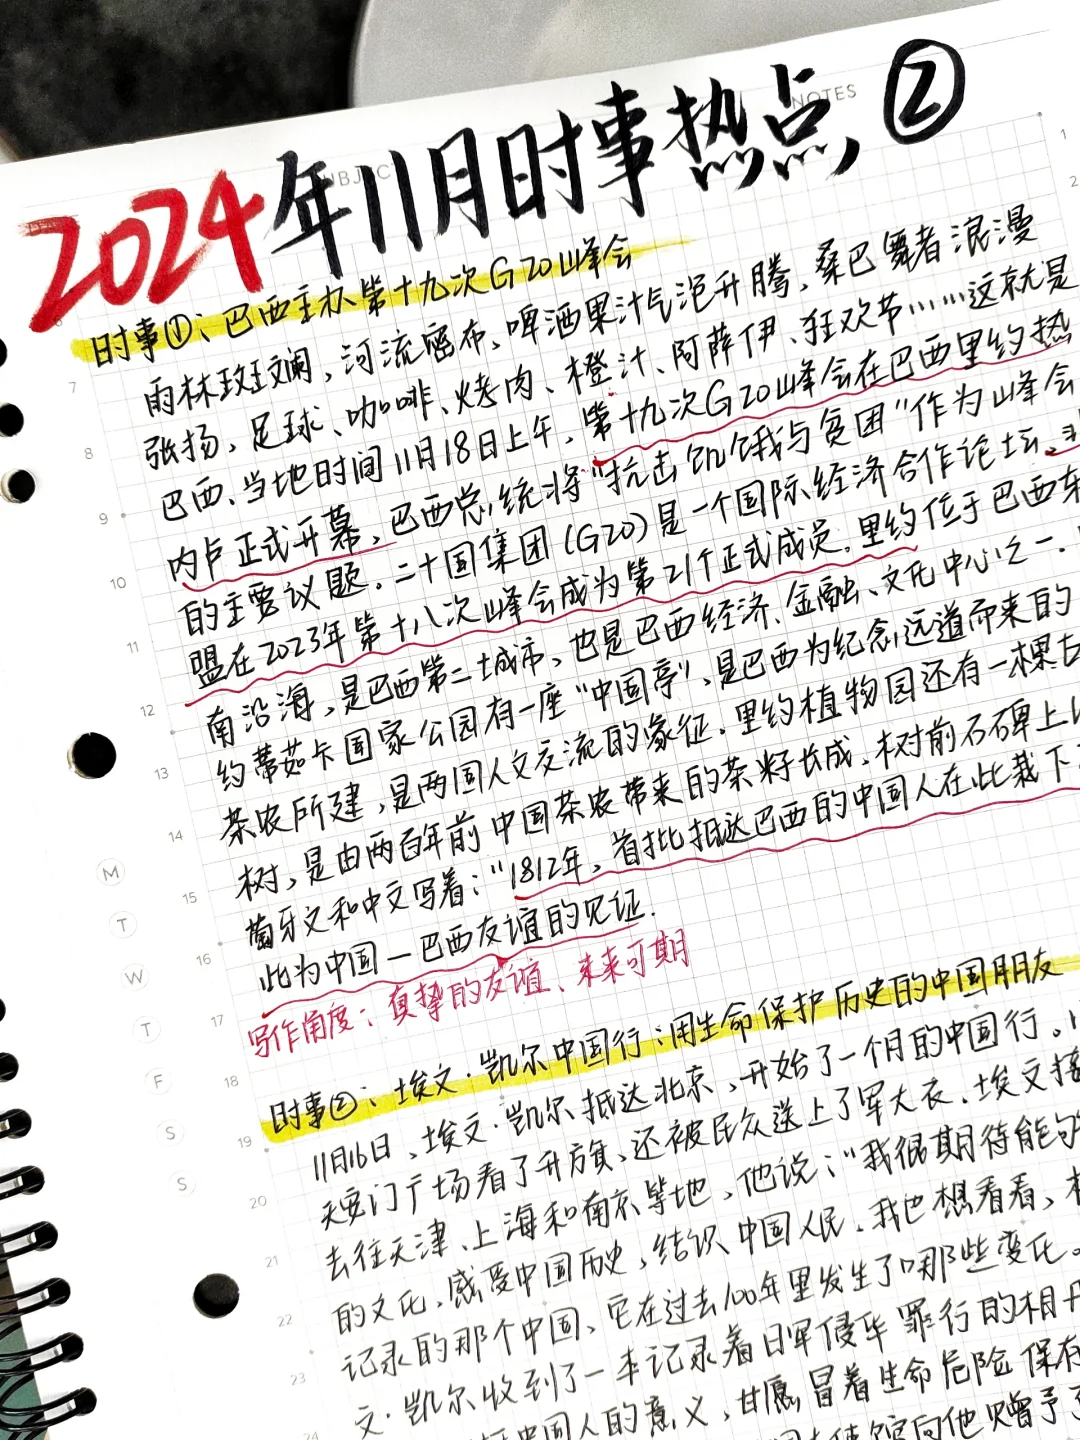 NOTES
SUBJEC
2024年11月时事热点②
时事①：巴西主办第十九次G20峰会
雨林斑斓，河流密布，啤酒果汁气泡升腾，桑巴舞者浪漫
张扬，足球、咖啡、烤肉、橙汁、阿萨伊、狂欢节……这就是
巴西、当地时间11月18日上午，第十九次G20峰会在巴西里约热
内卢正式开幕，巴西总统将“抗击饥饿与贫困”作为峰会
的主要议题。二十国集团(G20)是一个国际经济合作论坛，
盟在2023年第十八次峰会成为第21个正式成员．里约位于巴西东
南沿海，是巴西第二大城市，也是巴西经济、金融、文化中心之一．
约蒂茹卡国家公园有一座“中国亭”，是巴西为纪念远道而来的
茶农所建，是两国人文交流的象征．里约植物园还有一棵
树，是由两百年前中国茶农带来的茶籽长成，树前石碑上以
葡牙文和中文写着：“1812年，首批抵达巴西的中国人在此栽下
此为中国—巴西友谊的见证．
写作角度：真挚的友谊、未来可期
时事②：埃文·凯尔中国行：用生命保护历史的中国朋友
11月16日，埃文·凯尔抵达北京，开始了一个月的中国行。
天安门广场看了升旗，还被民众送上了军大衣．埃文接
去往天津、上海和南京等地，他说：“我很期待能够
的文化，感受中国历史，结识中国人民．我也想看看，
记录的那个中国、它在过去100年里发生了哪些变化。
文·凯尔收到了一本记录着日军侵华罪行的相册
中国人的意义，甘愿冒着生命危险保存
使馆向他赠予了
6
7
8
9
10
11
12
13
14
15
16
17
18
19
20
21
22
23
24
1
2
M
T
W
T
F
S
S